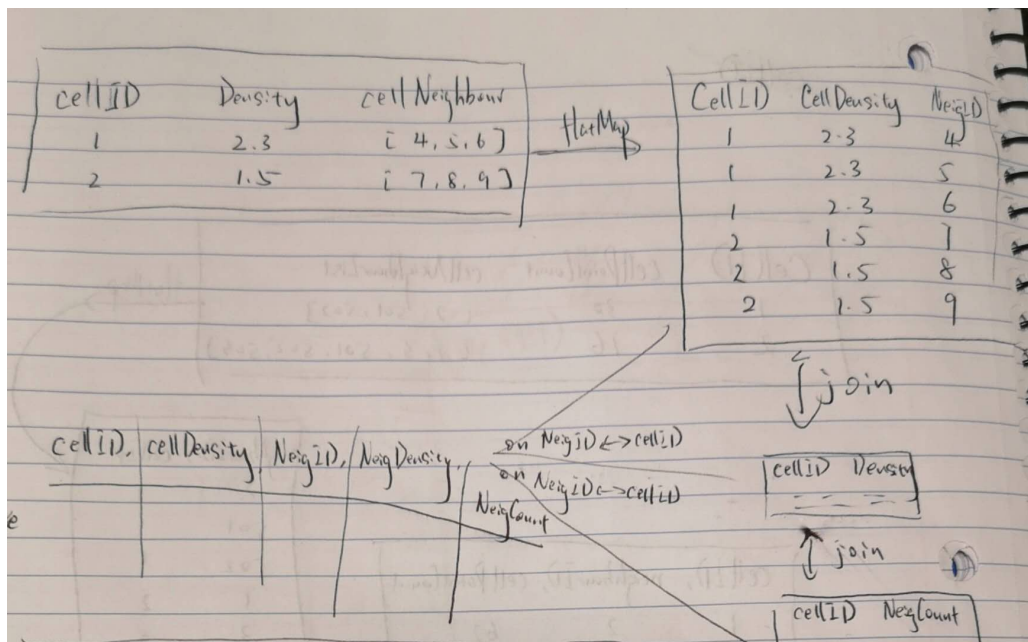 cellID Density cellNeighbour
1 2.3 [4,5,6]
2 1.5 [7,8,9]
flatMap
CellID CellDensity NeigID
1 2.3 4
1 2.3 5
1 2.3 6
2 1.5 7
2 1.5 8
2 1.5 9
join
cellID, cellDensity, NeigID, NeigDensity, NeigCount
on NeigID ↔ cellID
on NeigID ↔ cellID
cellID Density
join
cellID NeigCount
e